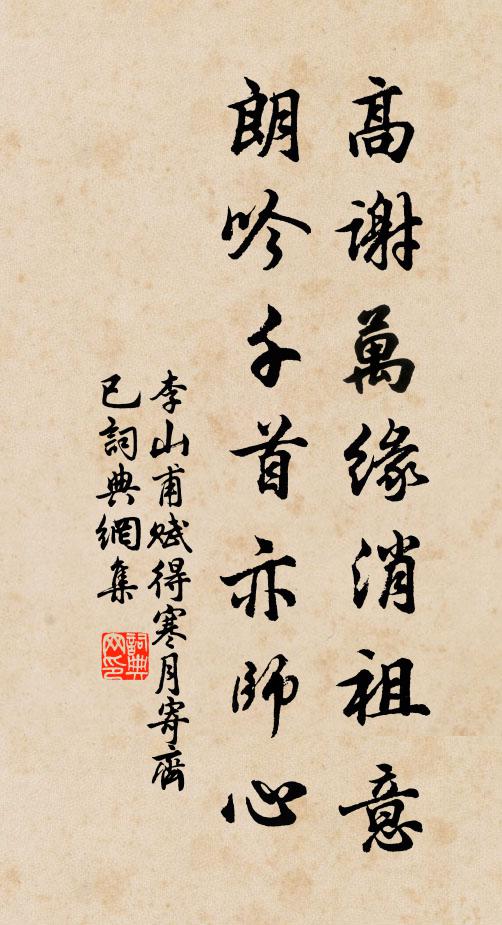 高謝萬緣消祖意
朗吟千首亦師心
李山甫賦得寒月寄齊
已詞典網集
詞典網印